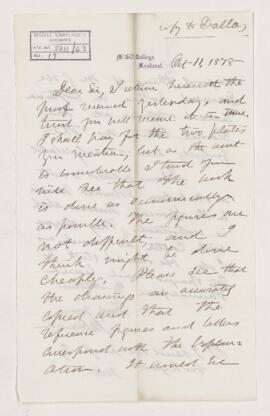 reply to Dallas
McGILL UNIVERSITY
ARCHIVES
ACC. NO. 2211/63
REF. 17
McGill College,
Montreal.
Oct 11, 1875
Dear Sir, I return herewith the
proof received yesterday, and
trust you will receive it in time.
I shall pay for the two plates
you mention; but as the amt
is considerable I trust you
will see that the work
is done as economically
as possible. The figures are
not difficult, and I
think might be done
cheaply. Please see that
the drawings are accurately
copied and that the
reference figures and letters
correspond with the explan-
ation. It would be